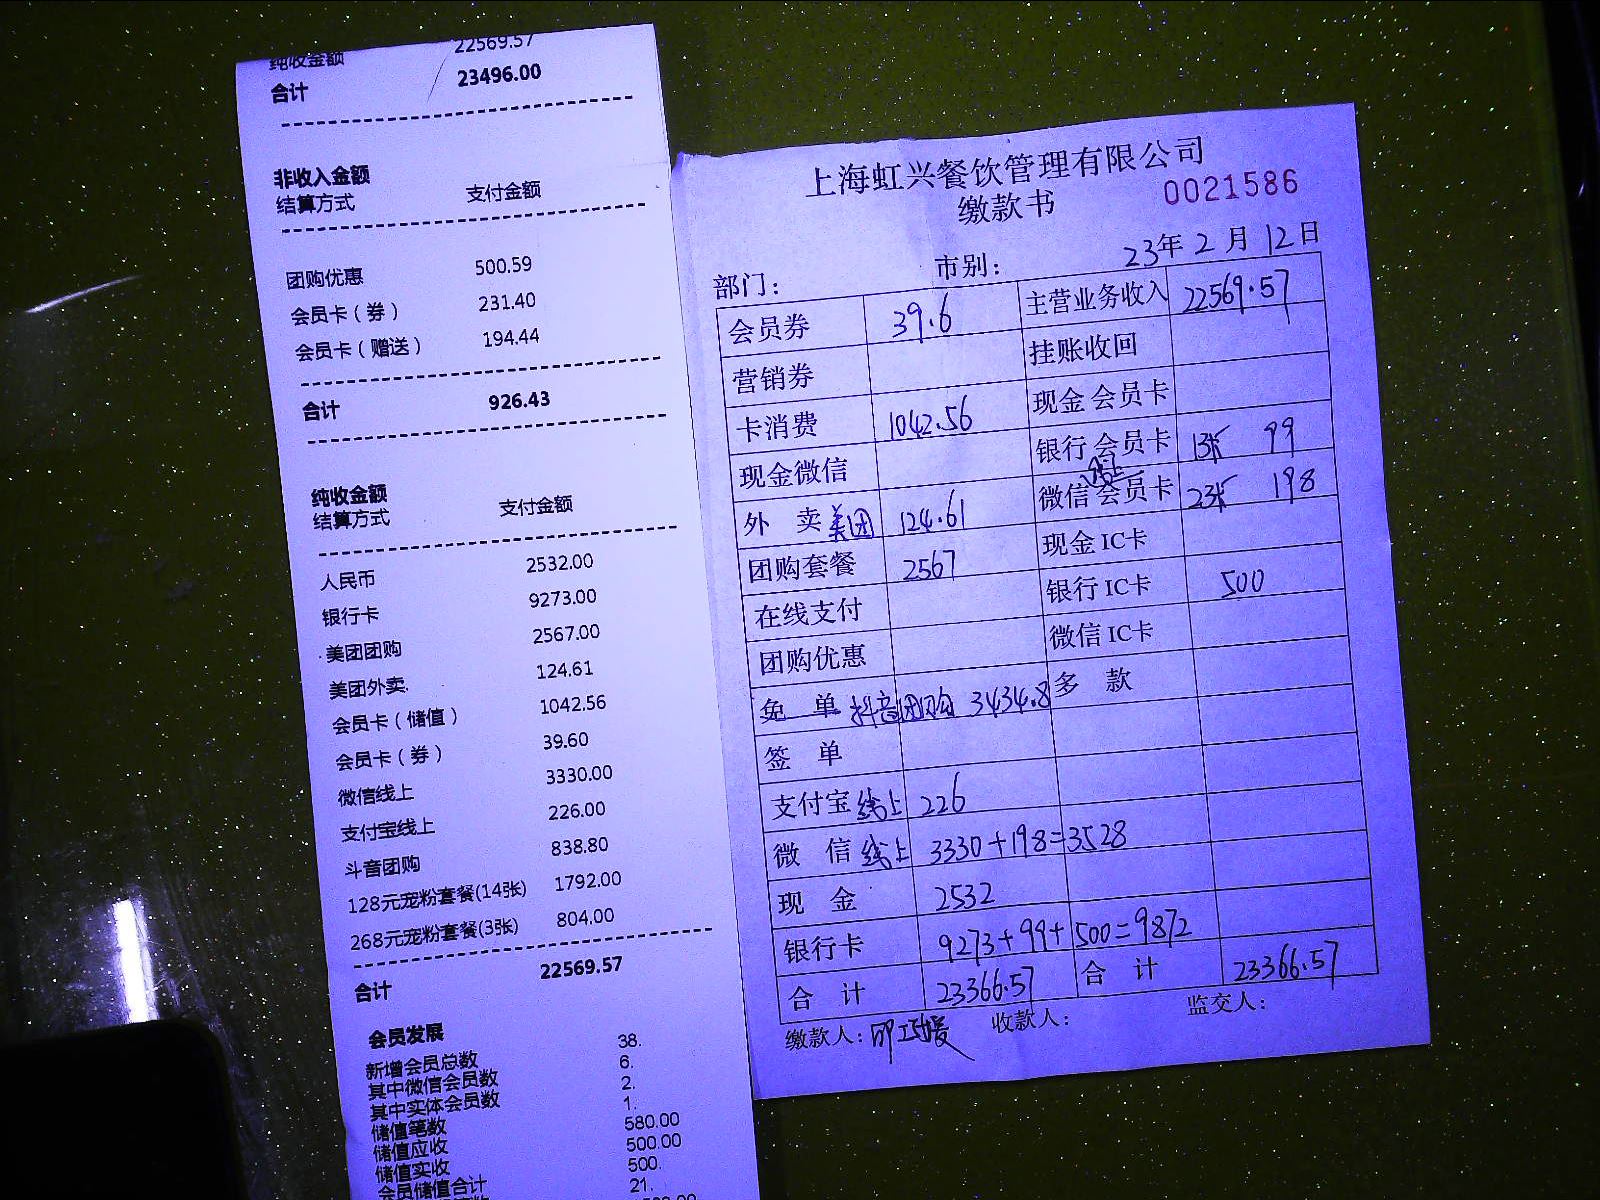 纯收金额 22569.57
合计 23496.00
非收入金额
结算方式 支付金额
团购优惠 500.59
会员卡（券） 231.40
会员卡（赠送） 194.44
合计 926.43
纯收金额
结算方式 支付金额
人民币 2532.00
银行卡 9273.00
美团团购 2567.00
美团外卖. 124.61
会员卡（储值） 1042.56
会员卡（券） 39.60
微信线上 3330.00
支付宝线上 226.00
斗音团购 838.80
128元宠粉套餐(14张) 1792.00
268元宠粉套餐(3张) 804.00
合计 22569.57
会员发展
新增会员总数 38.
其中微信会员数 6.
其中实体会员数 2.
储值笔数 1.
储值应收 580.00
储值实收 500.00
会员储值合计 500.
21.
上海虹兴餐饮管理有限公司
缴款书 0021586
部门： 市别： 23年 2 月 12日
会员券 39.6 主营业务收入 22569.57
营销券 挂账收回
卡消费 1042.56 现金 会员卡
现金微信 银行 会员卡 1张 99
外 卖 美团 124.61 微信 线上 会员卡 2张 198
团购套餐 2567 现金 IC卡
在线支付 银行 IC卡 500
团购优惠 微信 IC卡
免 单 抖音团购 3434.8 多 款
签 单
支付宝 线上 226
微 信 线上 3330+198=3528
现 金 2532
银行卡 9273+99+500=9872
合 计 23366.57 合 计 23366.57
缴款人： 收款人： 监交人：